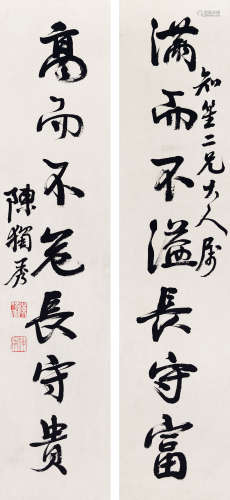 知笙二兄大人属
满而不溢長守富
高而不危長守貴
陳獨秀